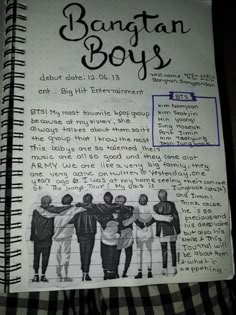 Bangtan
Boys
debut date: 12.06.13
Bangtan Sonyeondan
ent. : Big Hit Entertainment
BTS
Kim Namjoon
Kim Seokjin
Min Yoongi
Jung Hoseok
Park Jimin
Kim Taehyung
Jeon Jungkook
BTS! My most favorite kpop group
because of my sister, she
always talks about them so it's
the group that I know the most
This babys are so talented their
music are all so good and they care alot
ARMY we are like a very big family, they
are very active on twitter Yesterday, one
years ago I was at my home seeing their concert
of "The wings Tour" My bias is Jungkook
and Jimin I
think cause
he is so
precious and
his deep voice
but also his
smile This
Journal will
be about them
& what's
happening